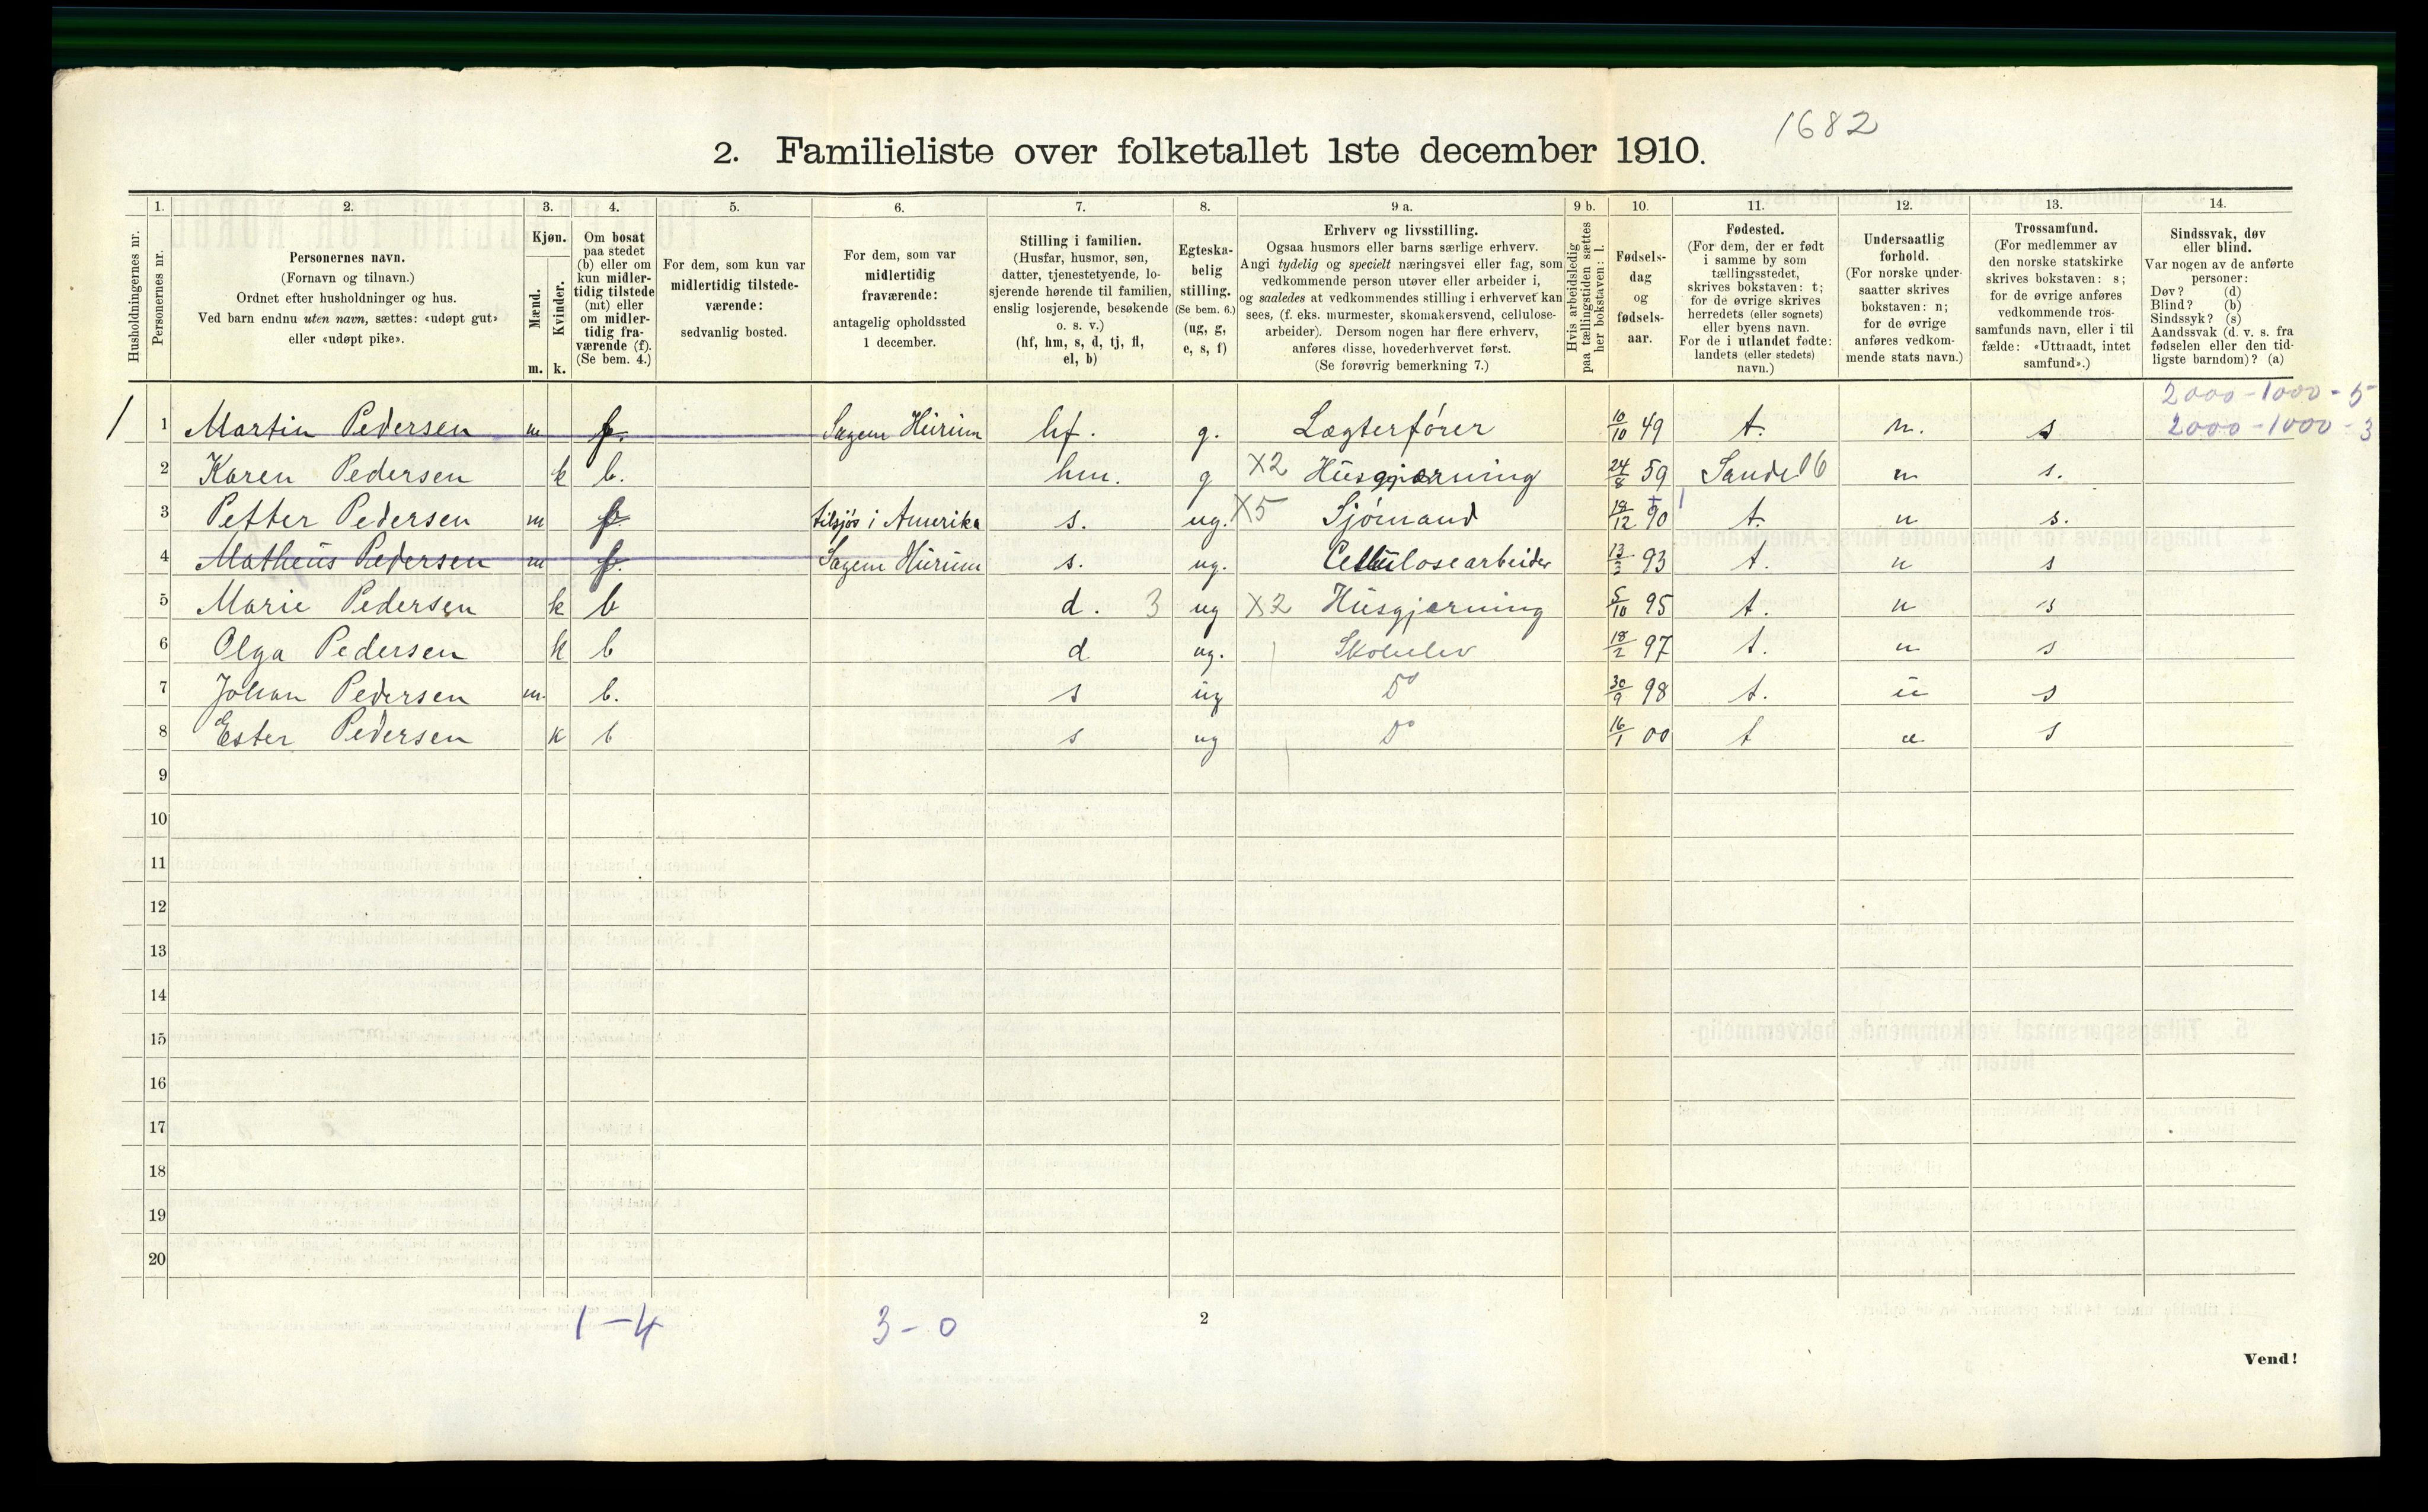 1682
2. Familieliste over folketallet 1ste december 1910.
1. 2. 3. 4. 5. 6. 7. 8. 9 a. 9 b. 10. 11. 12. 13. 14.
Husholdningernes nr.
Personernes nr.
Personernes navn.
(Fornavn og tilnavn.)
Ordnet efter husholdninger og hus.
Ved barn endnu uten navn, sættes: «udøpt gut»
eller «udøpt pike».
Kjøn.
Mænd.
Kvinder.
m. k.
Om bosat
paa stedet
(b) eller om
kun midler-
tidig tilstede
(mt) eller
om midler-
tidig fra-
værende (f).
(Se bem. 4.)
For dem, som kun var
midlertidig tilstede-
værende:
sedvanlig bosted.
For dem, som var
midlertidig
fraværende:
antagelig opholdssted
1 december.
Stilling i familien.
(Husfar, husmor, søn,
datter, tjenestetyende, lo-
sjerende hørende til familien,
enslig losjerende, besøkende
o. s. v.)
(hf, hm, s, d, tj, fl,
el, b)
Egteska-
belig
stilling.
(Se bem. 6.)
(ug, g,
e, s, f)
Erhverv og livsstilling.
Ogsaa husmors eller barns særlige erhverv.
Angi tydelig og specielt næringsvei eller fag, som
vedkommende person utøver eller arbeider i,
og saaledes at vedkommendes stilling i erhvervet kan
sees, (f. eks. murmester, skomakersvend, cellulose-
arbeider). Dersom nogen har flere erhverv,
anføres disse, hovederhvervet først.
(Se forøvrig bemerkning 7.)
Hvis arbeidsledig
paa tællingstiden sættes
her bokstaven: l.
Fødsels-
dag
og
fødsels-
aar.
Fødested.
(For dem, der er født
i samme by som
tællingsstedet,
skrives bokstaven: t;
for de øvrige skrives
herredets (eller sognets)
eller byens navn.
For de i utlandet fødte:
landets (eller stedets)
navn.)
Undersaatlig
forhold.
(For norske under-
saatter skrives
bokstaven: n;
for de øvrige
anføres vedkom-
mende stats navn.)
Trossamfund.
(For medlemmer av
den norske statskirke
skrives bokstaven: s;
for de øvrige anføres
vedkommende tros-
samfunds navn, eller i til
fælde: «Uttraadt, intet
samfund».)
Sindssvak, døv
eller blind.
Var nogen av de anførte
personer:
Døv? (d)
Blind? (b)
Sindssyk? (s)
Aandssvak (d. v. s. fra
fødselen eller den tid-
ligste barndom)? (a)
2000-1000-5
1 1 Martin Pedersen m f. Sagene Hurum hf. g. Lægterfører 10/10 49 t. n. s 2000-1000-3
2 Karen Pedersen k b. hm. g X2 Husgjærning 24/8 59 Sande 06 n s.
3 Petter Pedersen m f tilsjøs i Amerika s. ug. X5 Sjømand 12 90 t. n s.
4 Matheus Pedersen m f. Sagene Hurum s. ug. Cellulosearbeider 13/3 93 t. n s
5 Marie Pedersen k b d. 3 ug X2 Husgjerning 5/10 95 t. n s
6 Olga Pedersen k b d ug. Skoleelev 18/2 97 t. n s
7 Johan Pedersen m. b. s ug Do 30/9 98 t. n s
8 Ester Pedersen k b s ug Do 16/1 00 t n s
9
10
11
12
13
14
15
16
17
18
19
20
1-4 3-0
2
Vend!